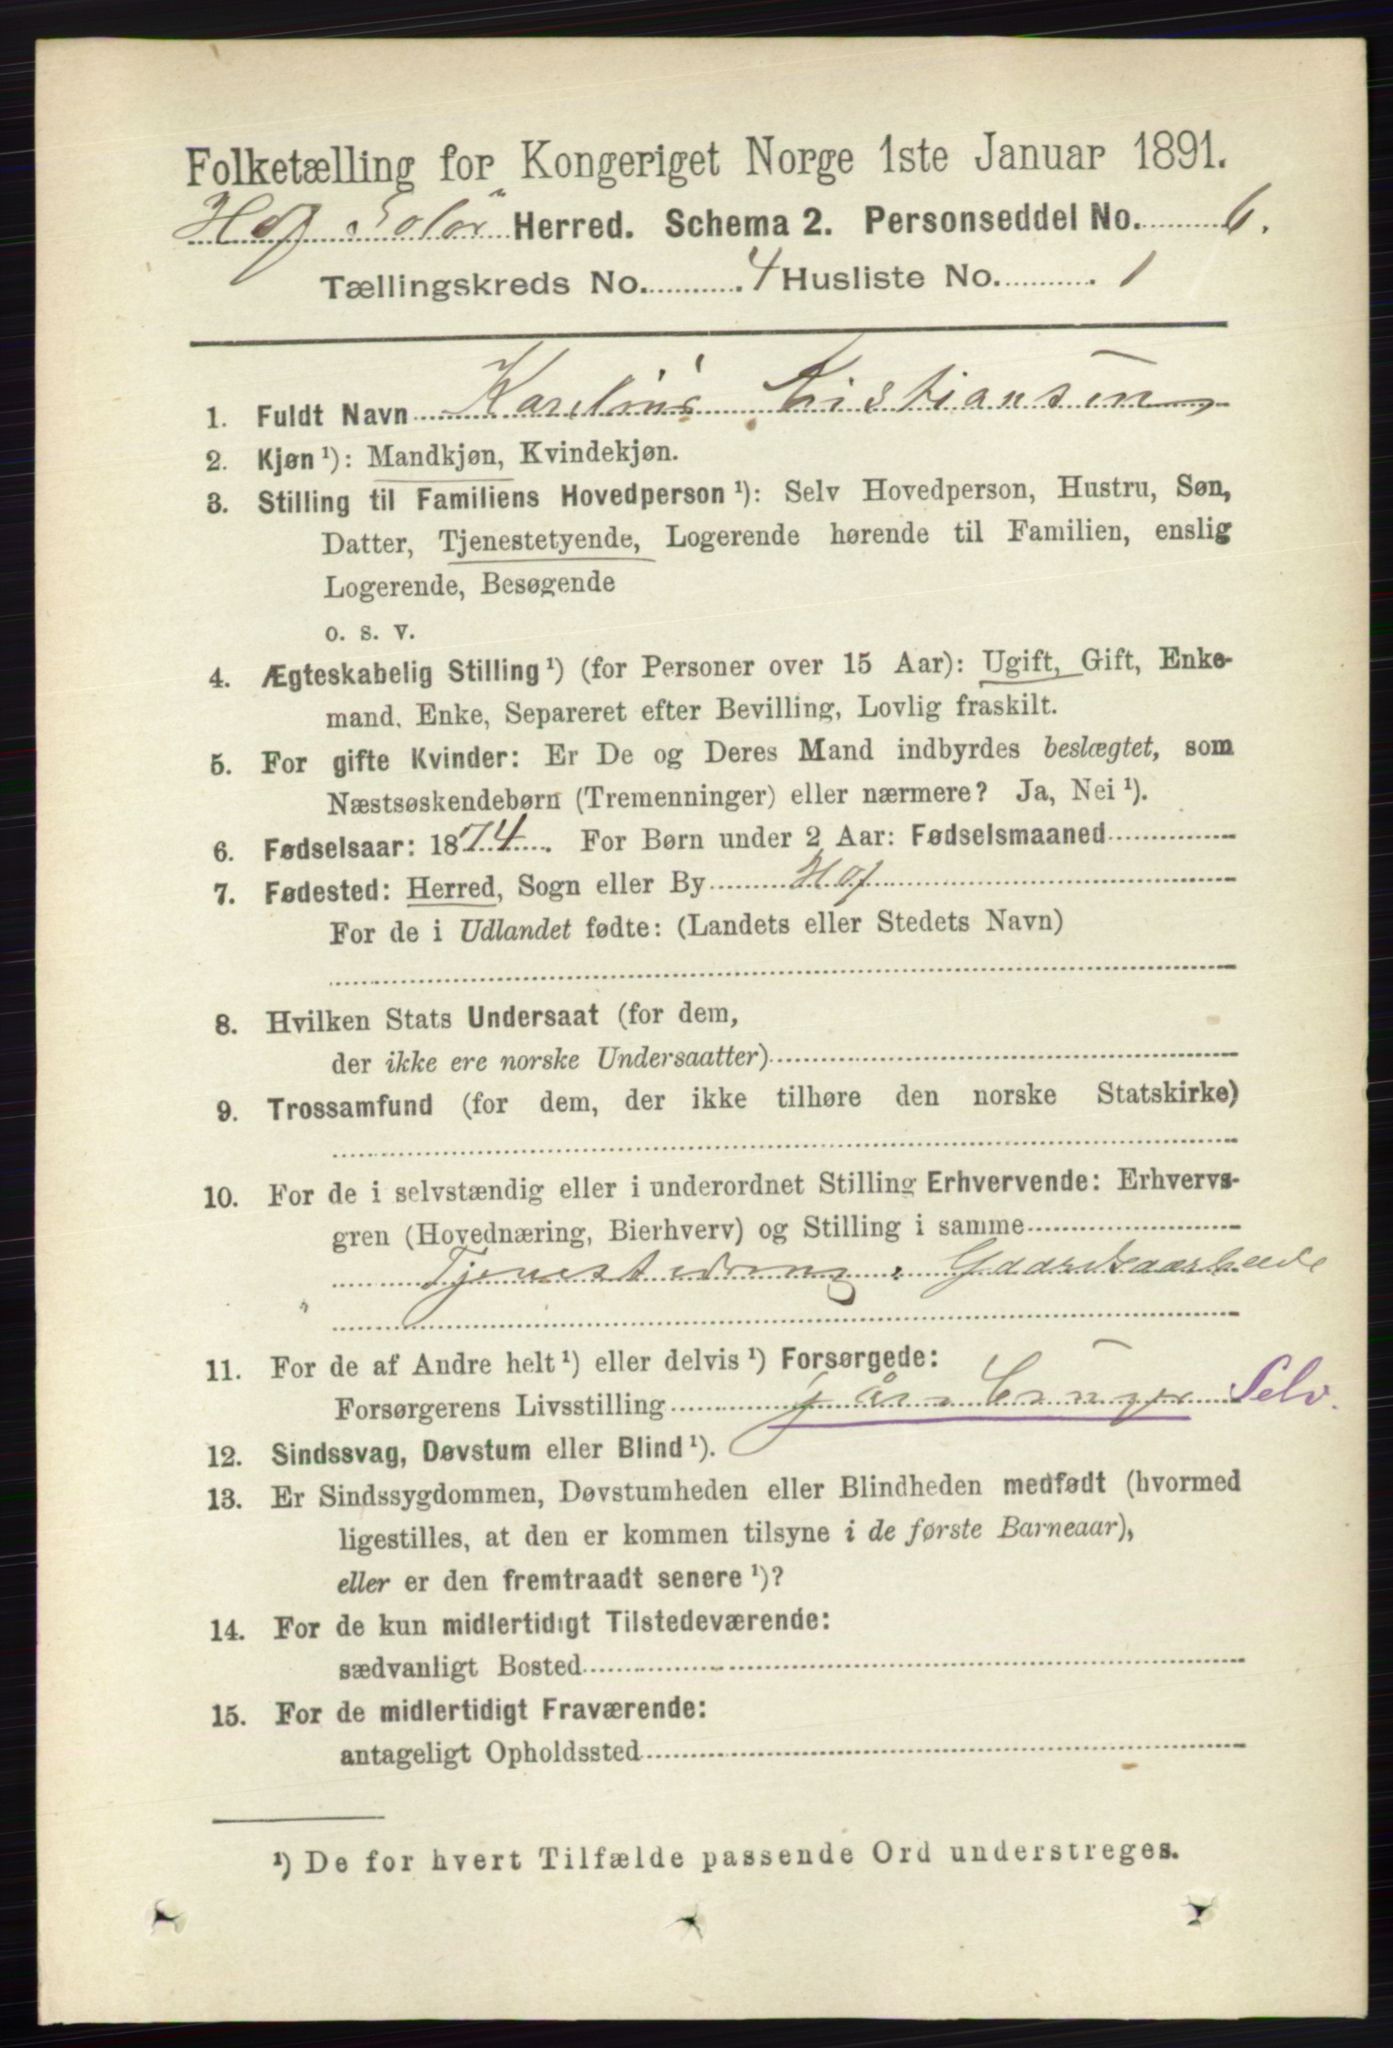 Folketælling for Kongeriget Norge 1ste Januar 1891.
Hof Solør Herred. Schema 2. Personseddel No. 6.
Tællingskreds No. 4 Husliste No. 1
1. Fuldt Navn Karelius Kristiansen
2. Kjøn ¹): Mandkjøn, Kvindekjøn.
3. Stilling til Familiens Hovedperson ¹): Selv Hovedperson, Hustru, Søn,
Datter, Tjenestetyende, Logerende hørende til Familien, enslig
Logerende, Besøgende
o. s. v.
4. Ægteskabelig Stilling ¹) (for Personer over 15 Aar): Ugift, Gift, Enke-
mand, Enke, Separeret efter Bevilling, Lovlig fraskilt.
5. For gifte Kvinder: Er De og Deres Mand indbyrdes beslægtet, som
Næstsøskendebørn (Tremenninger) eller nærmere? Ja, Nei ¹).
6. Fødselsaar: 1874. For Børn under 2 Aar: Fødselsmaaned
7. Fødested: Herred, Sogn eller By Hof
For de i Udlandet fødte: (Landets eller Stedets Navn)
8. Hvilken Stats Undersaat (for dem,
der ikke ere norske Undersaatter)
9. Trossamfund (for dem, der ikke tilhøre den norske Statskirke)
10. For de i selvstændig eller i underordnet Stilling Erhvervende: Erhvervs-
gren (Hovednæring, Bierhverv) og Stilling i samme
Tjenestedreng, Gaardsarbeide
11. For de af Andre helt ¹) eller delvis ¹) Forsørgede:
Forsørgerens Livsstilling Selv.
12. Sindssvag, Døvstum eller Blind ¹).
13. Er Sindssygdommen, Døvstumheden eller Blindheden medfødt (hvormed
ligestilles, at den er kommen tilsyne i de første Barneaar),
eller er den fremtraadt senere ¹)?
14. For de kun midlertidigt Tilstedeværende:
sædvanligt Bosted
15. For de midlertidigt Fraværende:
antageligt Opholdssted
¹) De for hvert Tilfælde passende Ord understreges.